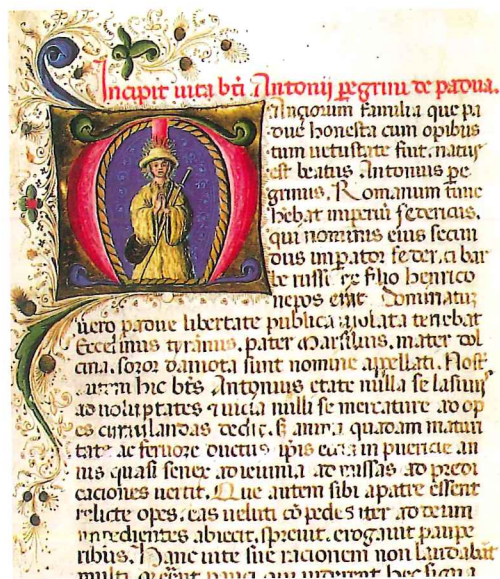 Incipit uita bti Antonij pegrini de padua.
Māgiorum familia que pa
due honesta cum opibus
tum uetustate fuit. natus
est beatus Antonius pe
grinus. Romanum tunc
hebat imperiū federicus.
qui nominis eius secun
dus impator feder.ci bar
be russe ex filio henrico
nepos erat. Dominatū
uero padue libertate publica uiolata tenebat
Eccelinus tyrānus. pater Marsilius. mater dol
cina. soror damota sunt nomine appellati. Nost
autem hic bts Antonius etate nulla se lasiuijs
ad uoluptates 7 uicia nulli se mercature ad op
es cumulandas dedit. S; animi quadam maturi
tate ac feruore ductus ipis etiā in puericie an
nis quasi senex ad ieiunia ad missas ad predi
caciones uertit. Que autem sibi a patre essent
relicte opes. eas ueluti cōpedes iter ad deum
impedientes abiecit. spreuit. erogauit paupe
ribus. Hanc uite sue racionem non laudabāt
multi